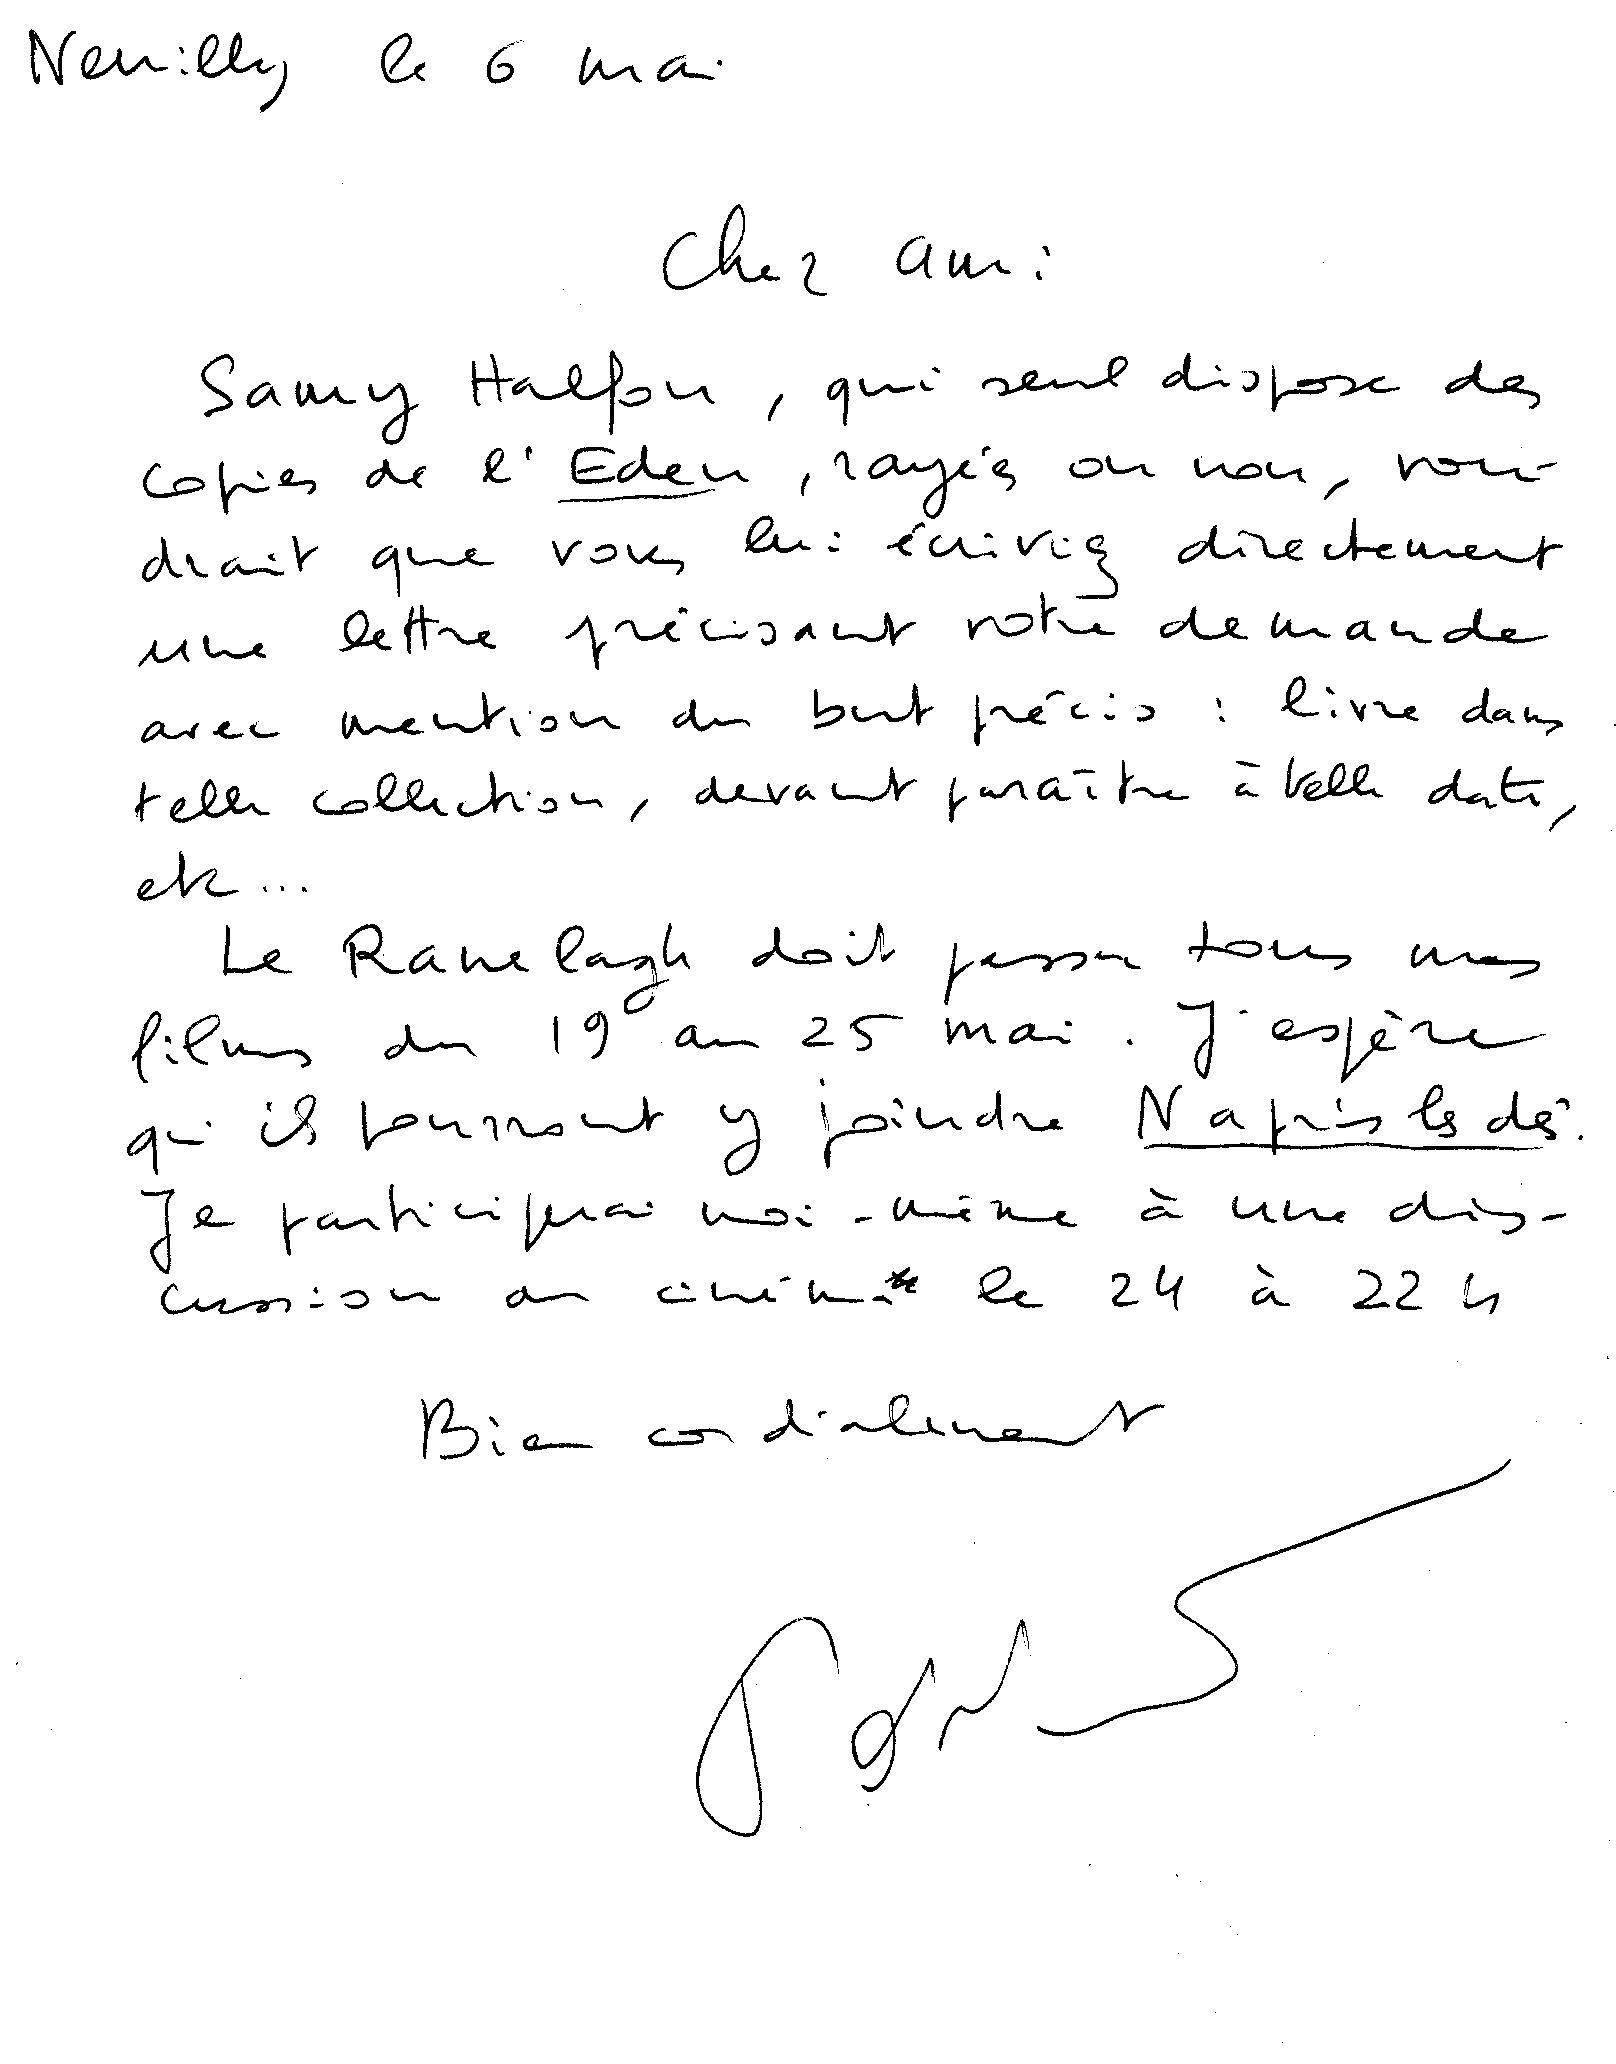 Neuilly le 6 mai
Cher ami
Samy Halfon, qui seul dispose des
copies de l'Eden, rayées ou non, vou-
drait que vous lui écriviez directement
une lettre précisant votre demande
avec mention du but précis : livre dans
telle collection, devant paraître à telle date,
etc...
Le Ranelagh doit passer tous mes
films du 19 au 25 mai. J'espère
qu'ils pourront y joindre N a pris les dés.
Je participerai moi-même à une dis-
cussion au cinéma le 24 à 22 h
Bien cordialement